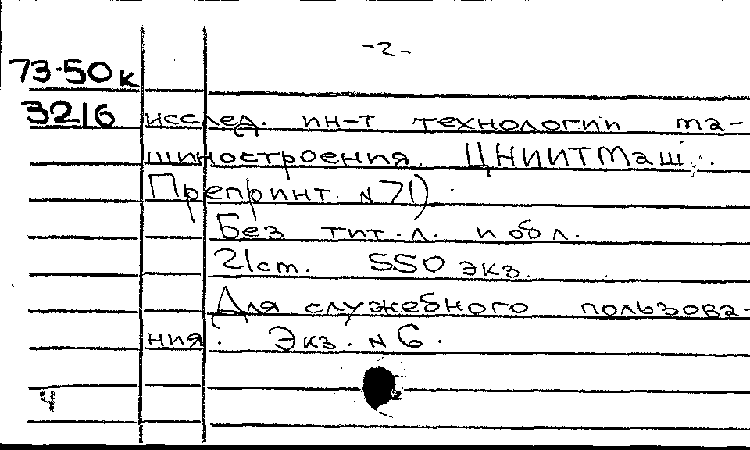 -2-
73-50к
3216 исслед. ин-т технологии ма-
шиностроения. ЦНИИТМаш.
Препринт. N71)
Без тит.л. и обл.
21ст. 550 экз.
Для служебного пользова-
ния. Экз. N6.
4